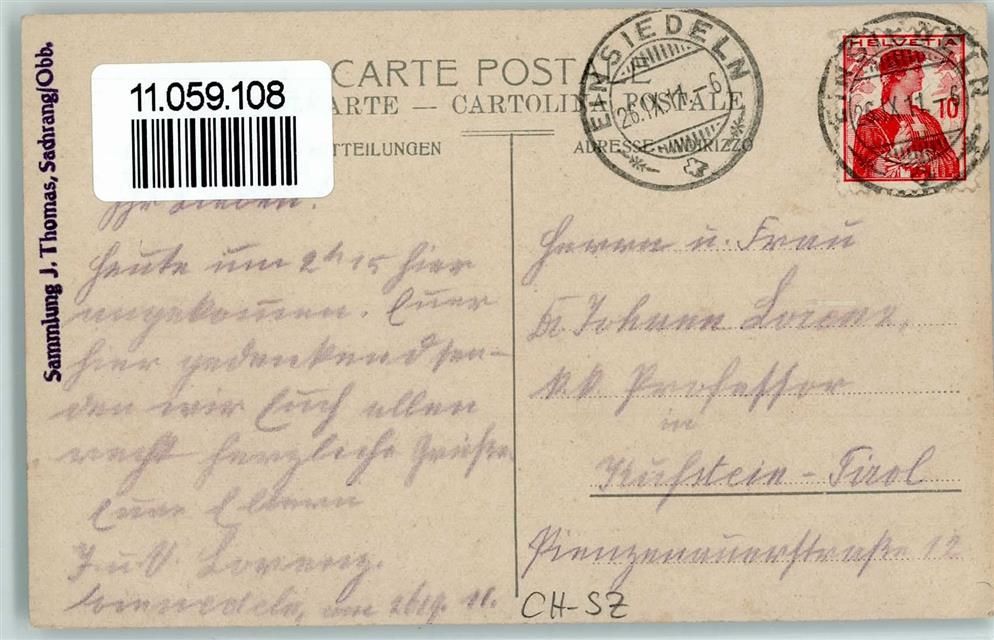 CARTE POSTALE
ARTE — CARTOLINA POSTALE
TTEILUNGEN
ADRESSE-INDIRIZZO
11.059.108
Sammlung J. Thomas, Sachrang/Obb.
EINSIEDELN
26.IX.11.–6
HELVETIA
10
EINSIEDELN
26.IX.11.–6
Ihr Lieben!
Heute um 2h15 hier
angekommen. Euer
hier gedenkend sen-
den wir Euch allen
recht herzliche Grüße
Eure Eltern
J u. V. Lorenz.
Einsiedeln, am 26/9. 11.
Herrn u. Frau
Dr Johann Lorenz,
k.k. Professor
in
Kufstein - Tirol
Pienzenauerstraße 12
CH-SZ